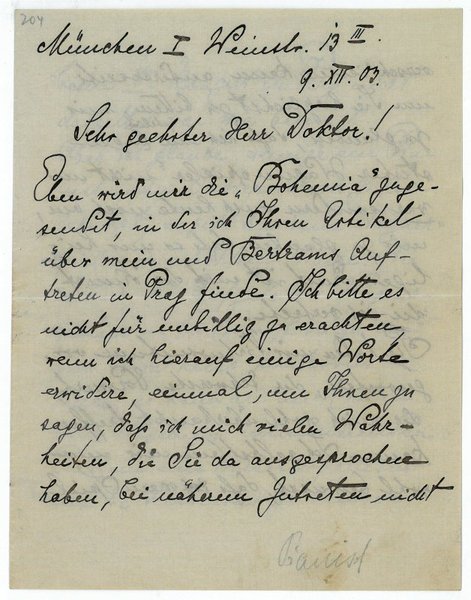 204
München I Weinstr. 13 III.
9. XII. 03.
Sehr geehrter Herr Doktor!
Eben wird mir die „Bohemia" zuge-
sendet, in der ich Ihren Artikel
über mein und Bertrams Auf-
treten in Prag finde. Ich bitte es
nicht für unbillig zu erachten,
wenn ich hierauf einige Worte
erwidere, einmal, um Ihnen zu
sagen, daß ich mich vielen Wahr-
heiten, die Sie da ausgesprochen
haben, bei näherem Zutreten nicht